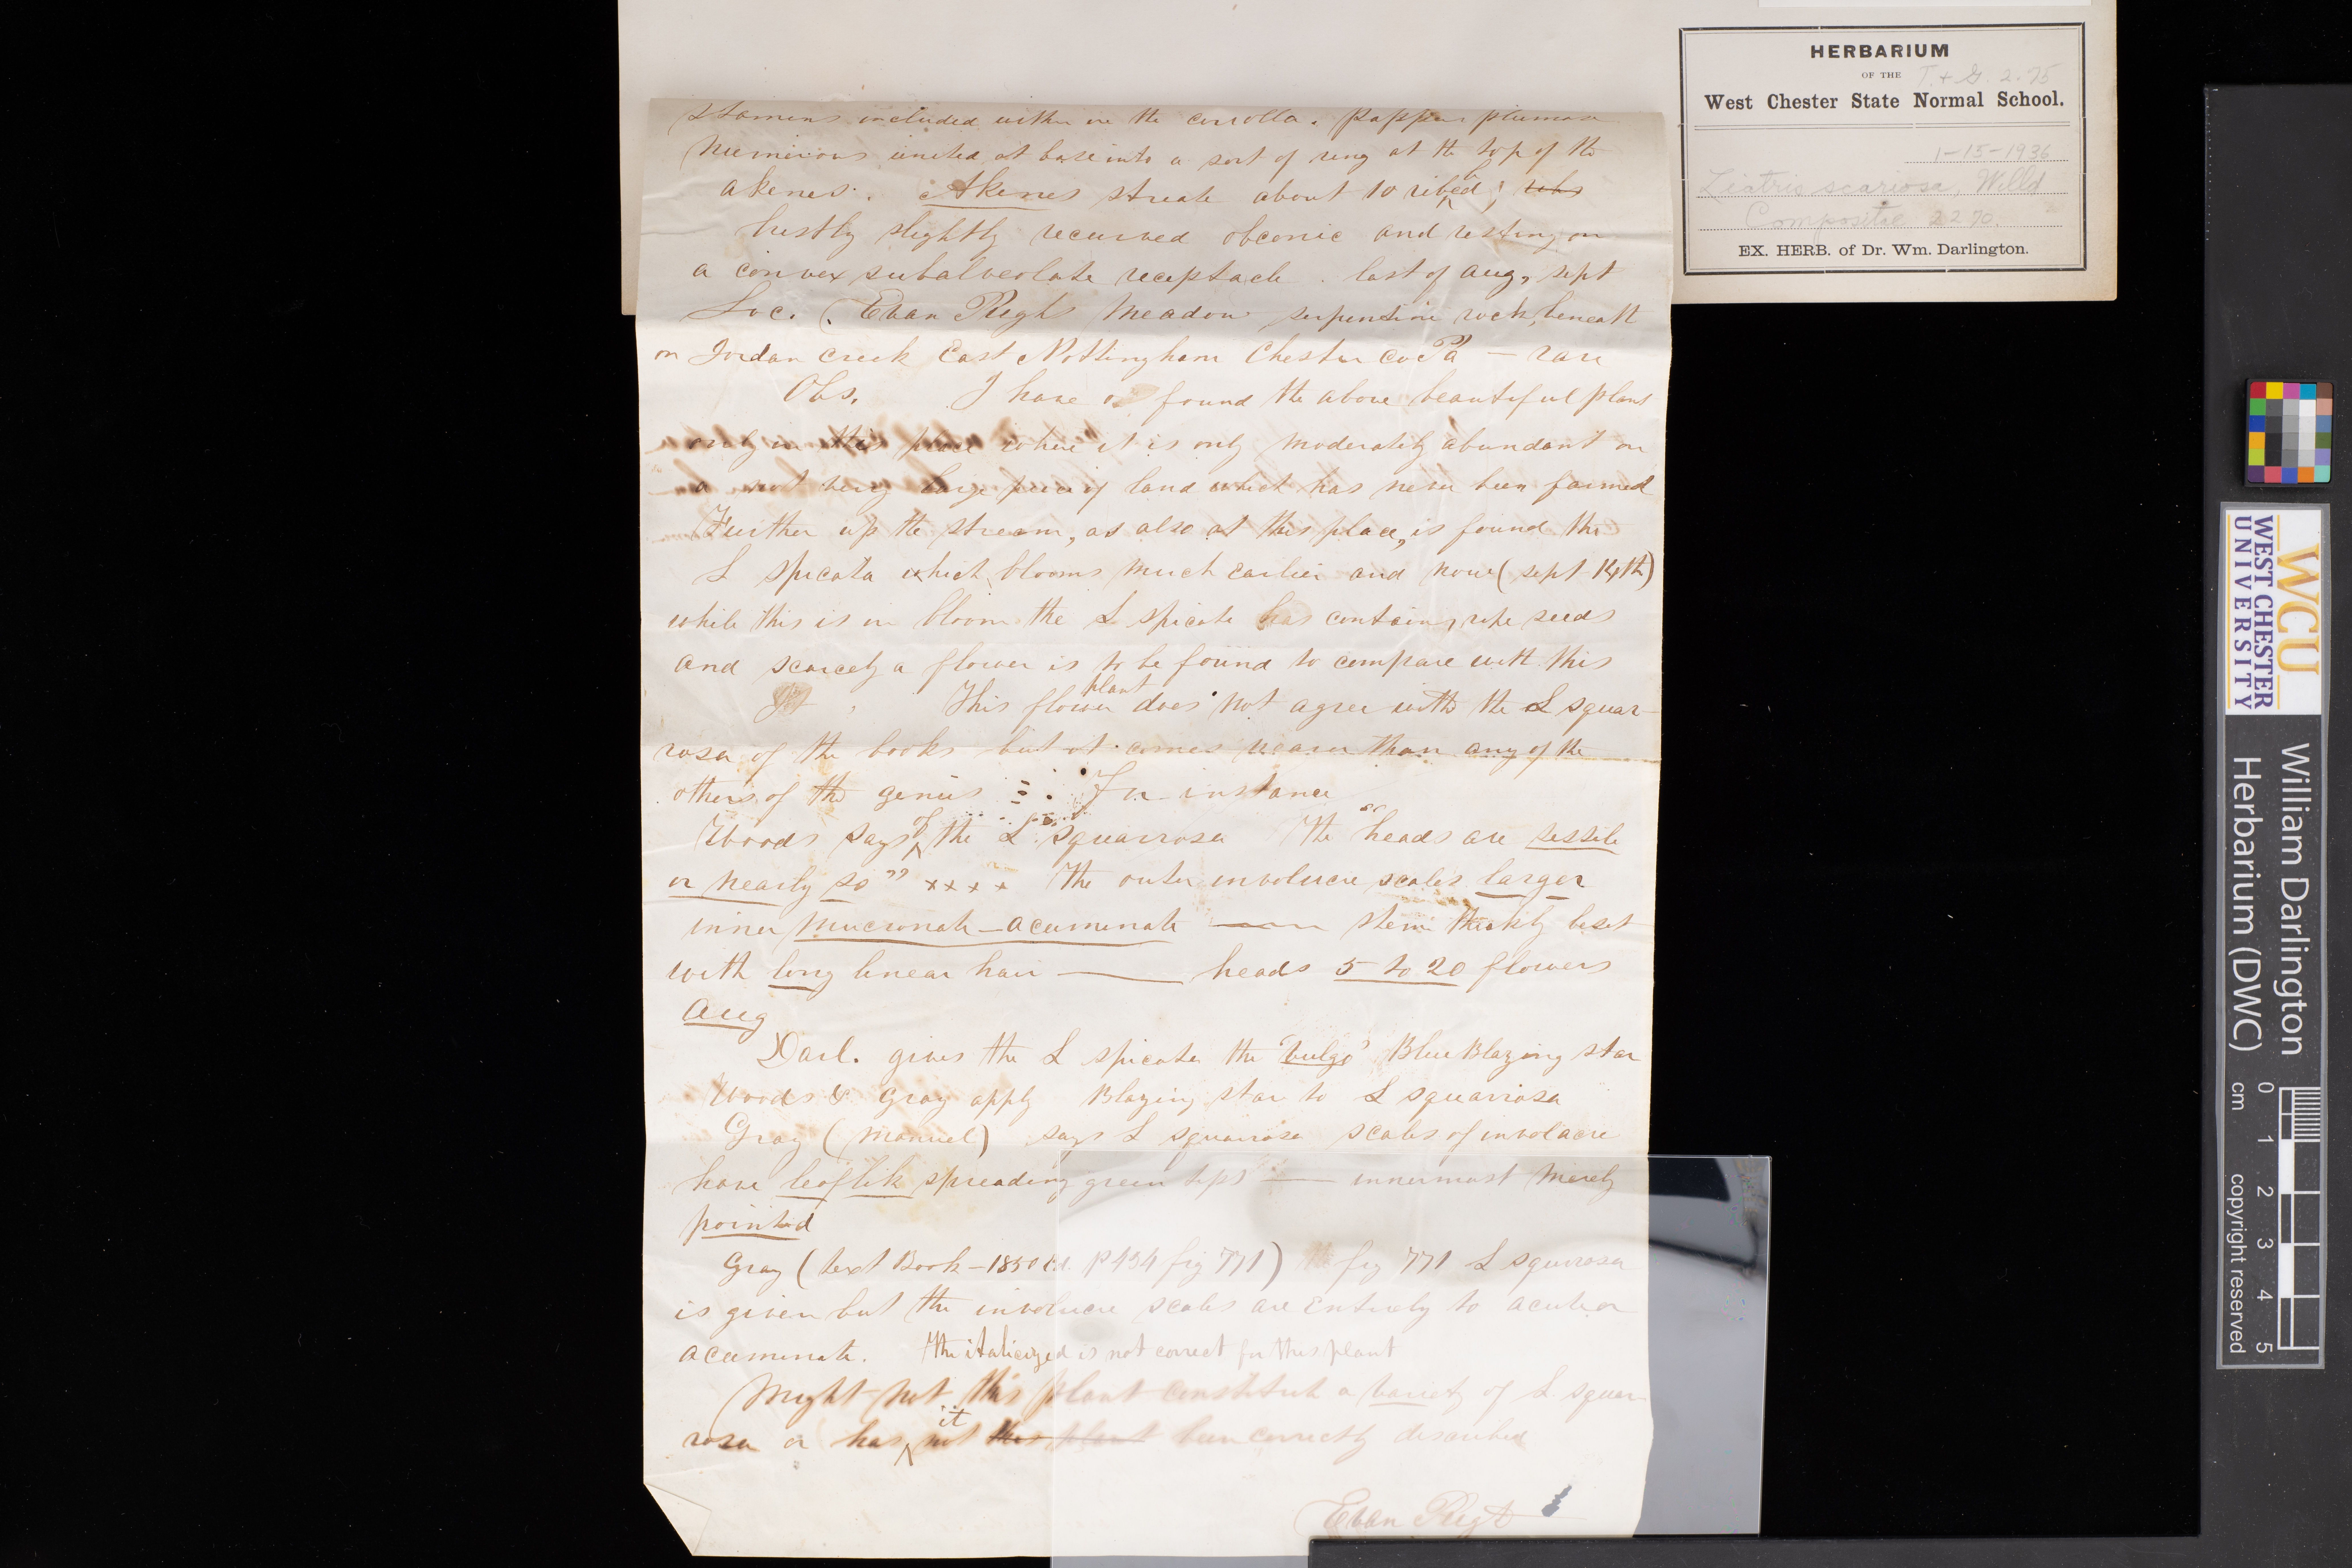 HERBARIUM
OF THE T. & G. 2.75
West Chester State Normal School.
1-15-1936
Liatris scariosa, Willd
Compositæ 2270.
EX. HERB. of Dr. Wm. Darlington.
Stamens included within the corrolla. Pappus plumose
numerous united at base into a sort of ring at the top of the
akenes. Akenes striate about 10 ribbed; ribs
bristly slightly recurved obconic and resting on
a convex subalveolate receptacle. last of aug, sept
Loc. Evan Pugh's Meadow serpentine rock, beneath
on Jordan creek East Nottingham Chester co Pa — rare
Obs. I have found the above beautiful plant
only in this place where it is only moderately abundant on
a not very large piece of land which has never been farmed
Further up the stream, as also at this place, is found the
L spicata which blooms much earlier and now (sept 14th)
while this is in bloom the L spicata has contains ripe seeds
and scarcely a flower is to be found to compare with this
It This flower plant does not agree with the L squar-
rosa of the books but it comes nearer than any of the
others of the genus : For instance
Woods says of the L squarrosa The "heads are sessile
or nearly so" x x x x The outer involucre scales larger
inner mucronate-acuminate — stem thickly beset
with long linear hair — heads 5 to 20 flowers
Aug
Darl. gives the L spicata the 'vulgo' Blue Blazing star
Woods & Gray apply Blazing star to L squarrosa
Gray (Manuel) says L squarrosa scales of involucre
have leaflike spreading green tips — innermost merely
pointed
Gray (text Book — 1850 ed. P 434 fig 771) fig 771 L squarrosa
is given but the involucre scales are entirely to acute or
acuminate. The italicized is not correct for this plant
Might not this plant constitute a variety of L squar
rosa or has it not this plant been correctly described
Evan Pugh
WCU
WEST CHESTER
UNIVERSITY
William Darlington
Herbarium (DWC)
0 1 2 3 4 5
cm copyright reserved